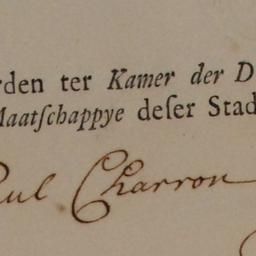 rden ter Kamer der D
Maatſchappye deſer Stad
Paul Charron